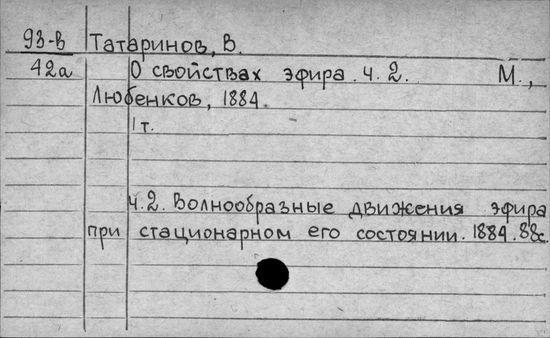 93-В Татаринов, В.
42а О свойствах эфира. Ч. 2. М.,
Любенков, 1884.
1 т.
Ч. 2. Волнообразные движения эфира
при стационарном его состоянии. 1884. 88с.